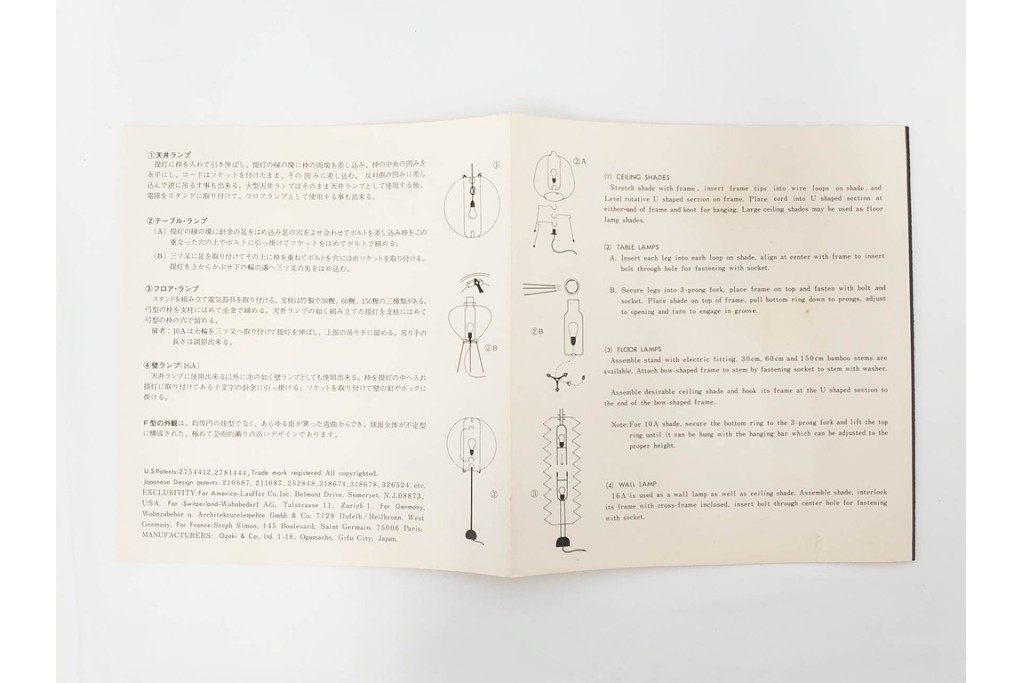 ①天井ランプ
提灯に枠を入れて引き伸ばし、提灯の縁の環に枠の両端を差し込み、枠の中央の凹みを
水平にし、コードはソケットを付けたまま、その凹みに差し込む。反対側の凹みに差し
込んで逆に吊るす事も出来る。大型天井ランプはそのまま天井ランプとして使用する他、
電球をスタンドに取り付けて、フロアランプとして使用する事も出来る。
②テーブル・ランプ
(A) 提灯の縁の環に針金の足をはめ込み足の穴をよせ合わせてボルトを差し込み枠をこの
重なった穴の上でボルトに引っ掛けてソケットをはめてボルトで締める。
(B) 三ツ又に足を取り付けてその上に枠を重ねてボルトを穴にはめソケットを取り付ける。
提灯を上からかぶせ下の輪の溝へ三ツ又の先をはめ込む。
③フロア・ランプ
スタンドを組み立て電気器具を取り付ける。支柱は竹製で30糎、60糎、150糎の三種類がある。
弓型の枠を支柱にはめて座金で締める。天井ランプの如く組み立てた提灯を支柱にはめて
弓型の枠の穴で留める。
備考:10Aは大輪を三ツ又へ取り付けて提灯を伸ばし、上部の吊り手に留める。吊り手の
長さは調節出来る。
④壁ランプ(16A)
天井ランプに使用出来る以外に次の如く壁ランプとしても使用出来る。枠を提灯の中へ入れ
提灯に取り付てある十文字の針金に引っ掛ける。ソケットを取り付けて壁の釘やホックに
掛ける。
F型の外観は、均等円の球型でなく、あらゆる面が異った弯曲からでき、球面全体が不定型
に構成された、極めて芸術的薫りの高いデザインであります。
U.S.Patents:2754412,2781444, Trade mark registered. All copyrighted.
Japanese Design patents: 210587, 211087, 252848, 318674, 318678, 326524. etc.
EXCLUSIVITY: For America-Lauffer Co. Inc. Belmont Drive. Somerset. N.J.08873,
USA. For Switzerland-Wohnbedarf AG, Talstrasse 11, Zurich 1. For Germany,
Wohnzubehor u. Architekturelemehte Gmbh & Co. 7129 Ilsfelb/Heilbronn. West
Germany, For France-Steph Simon, 145 Boulevard, Saint Germain, 75006 Paris.
MANUFACTURERS: Ozeki & Co., Ltd. 1-18, Ogumacho, Gifu City, Japan.
①
②B
③
②A
②B
③
(1) CEILING SHADES
Stretch shade with frame, insert frame tips into wire loops on shade, and
Level rotative U shaped section on frame. Place cord into U shaped section at
either end of frame and knot for hanging. Large ceiling shades may be used as floor
lamp shades.
(2) TABLE LAMPS
A. Insert each leg into each loop on shade, align at center with frame to insert
bolt through hole for fastening with socket.
B. Secure legs into 3-prong fork, place frame on top and fasten with bolt and
socket. Place shade on top of frame, pull bottom ring down to prongs, adjust
to opening and turn to engage in groove.
(3) FLOOR LAMPS
Assemble stand with electric fitting. 30cm, 60cm and 150cm bamboo stems are
available. Attach bow-shaped frame to stem by fastening socket to stem with washer.
Assemble desirable ceiling shade and hook its frame at the U shaped section to
the end of the bow-shaped frame.
Note: For 10A shade, secure the bottom ring to the 3-prong fork and lift the top
ring until it can be hung with the hanging bar which can be adjusted to the
proper height.
(4) WALL LAMP
16A is used as a wall lamp as well as ceiling shade. Assemble shade, interlock
its frame with cross-frame inclosed, insert bolt through center hole for fastening
with socket.